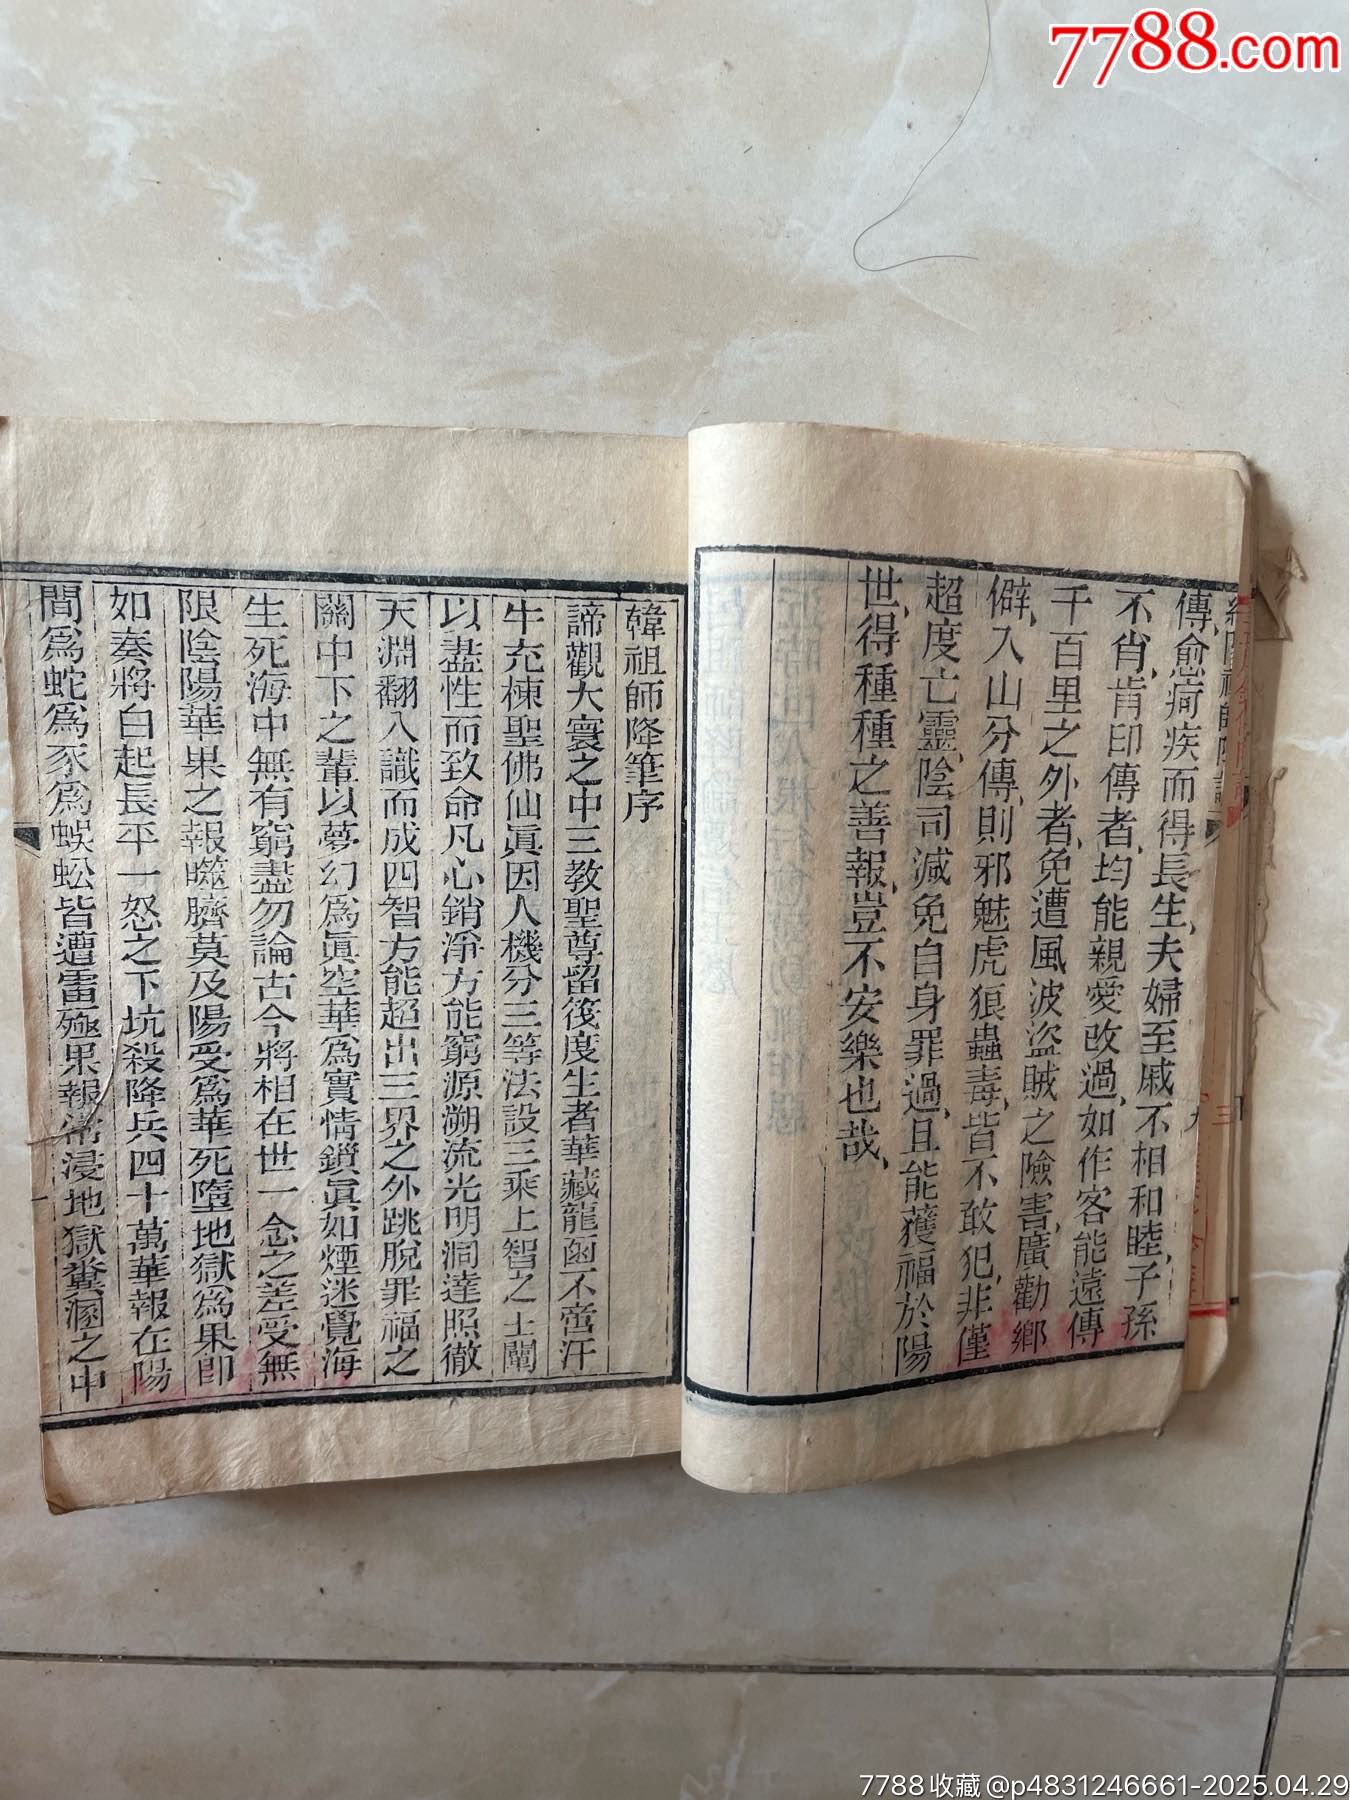 7788.com
傳、愈疴疾而得長生、夫婦至戚不相和睦、子孫
不肖、肯印傳者、均能親愛改過、如作客能遠傳
千百里之外者、免遭風波盜賊之險害、廣勸鄉
僻、入山分傳、則邪魅虎狼蟲毒、皆不敢犯、非僅
超度亡靈、陰司減免自身罪過、且能獲福於陽
世、得種種之善報、豈不安樂也哉、
韓祖師降筆序
諦觀大寰之中三教聖尊留筏度生者華藏龍函不啻汗
牛充棟聖佛仙眞因人機分三等法設三乘上智之士闡
以盡性而致命凡心銷淨方能窮源溯流光明洞達照徹
天淵翻八識而成四智方能超出三界之外跳脫罪福之
關中下之輩以夢幻爲眞空華爲實情鎖眞如煙迷覺海
生死海中無有窮盡勿論古今將相在世一念之差受無
限陰陽華果之報噬臍莫及陽受爲華死墮地獄爲果卽
如秦將白起長平一怒之下坑殺降兵四十萬華報在陽
間爲蛇爲豕爲蜈蚣皆遭雷殛果報常浸地獄糞溷之中
7788收藏@p4831246661-2025.04.29